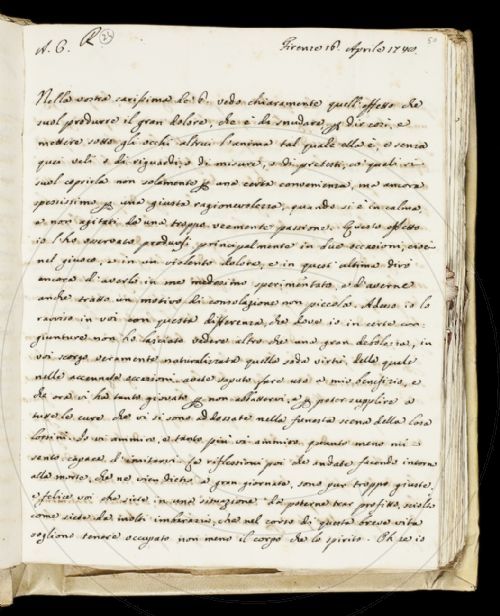 A. C. R 25 Firenze 16. Aprile 1740. 50
Nella vostra carissima de 6. vedo chiaramente quell'effetto che
suol produrre il gran dolore, che è da snudare p dir così, e
mettere sotto gli occhi altrui l'anima tal quale ella è, e senza
quei veli di riguardi, e di misure, e di pretesti, co' quali si
suol coprirla non solamente p una certa convenienza, ma ancora
spessissimo p una giusta ragionevolezza, quando si è in calma,
e non agitati da una troppo veemente passione. Questo effetto
io l'ho osservato prodursi principalmente in due occasioni, cioè
nel giuoco, e in un violento dolore, e in quest'ultima direi
ancora d'averlo in me medesimo sperimentato, e d'averne
anche tratto un motivo di consolazione non piccola. Adesso io lo
ravviso in voi con questa differenza, che dove io in certe con-
giunture non ho lasciato vedere altro che una gran debolezza, in
voi scorgo veramente naturalizzata quella soda virtù, della quale
nelle accennate occasioni avete saputo fare uso a mio benefizio, e
che ora vi ha tanto giovato p non abbattervi, e p poter supplire a
tutte le cure che vi si sono addossate nella funesta scena della Casa
Corsini. Io vi ammiro, e tanto più vi ammiro quanto meno mi
sento capace d'imitarvi. Le riflessioni poi che andate facendo intorno
alla morte, che ne vien dietro a gran giornate, sono pur troppo giuste,
e felice voi che siete in una situazione da poterne trar profitto, sciolto
come siete da molti imbarazzi, che nel corso di questa breve vita
sogliono tenere occupato non meno il corpo che lo spirito. Oh se io